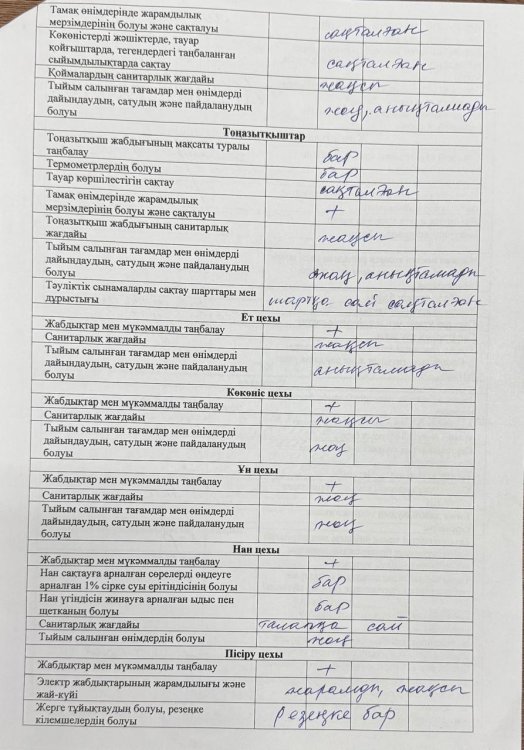 Тамақ өнімдерінде жарамдылық
мерзімдерінің болуы және сақталуы сақталған
Көкөністерді жәшіктерде, тауар
қойғыштарда, тегендердегі таңбаланған
сыйымдылықтарда сақтау сақталған
Қоймалардың санитарлық жағдайы жақсы
Тыйым салынған тағамдар мен өнімдерді
дайындаудың, сатудың және пайдаланудың
болуы жоқ, анықталмады
Тоңазытқыштар
Тоңазытқыш жабдығының мақсаты туралы
таңбалау бар
Термометрлердің болуы бар
Тауар көршілестігін сақтау сақталған
Тамақ өнімдерінде жарамдылық
мерзімдерінің болуы және сақталуы +
Тоңазытқыш жабдығының санитарлық
жағдайы жақсы
Тыйым салынған тағамдар мен өнімдерді
дайындаудың, сатудың және пайдаланудың
болуы жоқ, анықтамады
Тәуліктік сынамаларды сақтау шарттары мен
дұрыстығы шартқа сай сақталған
Ет цехы
Жабдықтар мен мүкәммалды таңбалау +
Санитарлық жағдайы жақсы
Тыйым салынған тағамдар мен өнімдерді
дайындаудың, сатудың және пайдаланудың
болуы анықталмады
Көкөніс цехы
Жабдықтар мен мүкәммалды таңбалау +
Санитарлық жағдайы жақсы
Тыйым салынған тағамдар мен өнімдерді
дайындаудың, сатудың және пайдаланудың
болуы жоқ
Ұн цехы
Жабдықтар мен мүкәммалды таңбалау +
Санитарлық жағдайы жоқ
Тыйым салынған тағамдар мен өнімдерді
дайындаудың, сатудың және пайдаланудың
болуы жоқ
Нан цехы
Жабдықтар мен мүкәммалды таңбалау +
Нан сақтауға арналған сөрелерді өңдеуге
арналған 1% сірке суы ерітіндісінің болуы бар
Нан үгіндісін жинауға арналған ыдыс пен
щетканың болуы бар
Санитарлық жағдайы талапқа сай
Тыйым салынған өнімдердің болуы жоқ
Пісіру цехы
Жабдықтар мен мүкәммалды таңбалау +
Электр жабдықтарының жарамдылығы және
жай-күйі жарамды, жақсы
Жерге тұйықтаудың болуы, резеңке
кілемшелердің болуы Резеңке бар